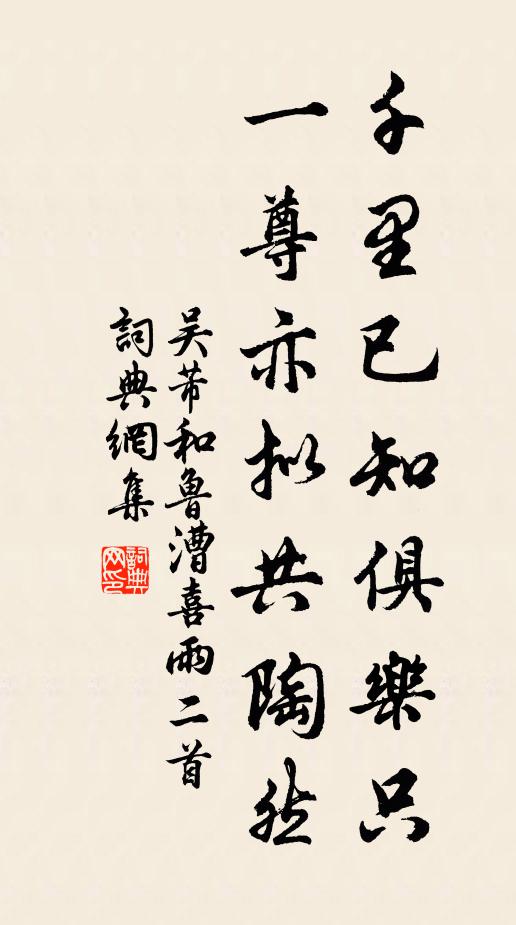 千里已知俱樂只
一尊亦拟共陶然
吴芾和魯漕喜雨二首
詞典網集
詞典网印